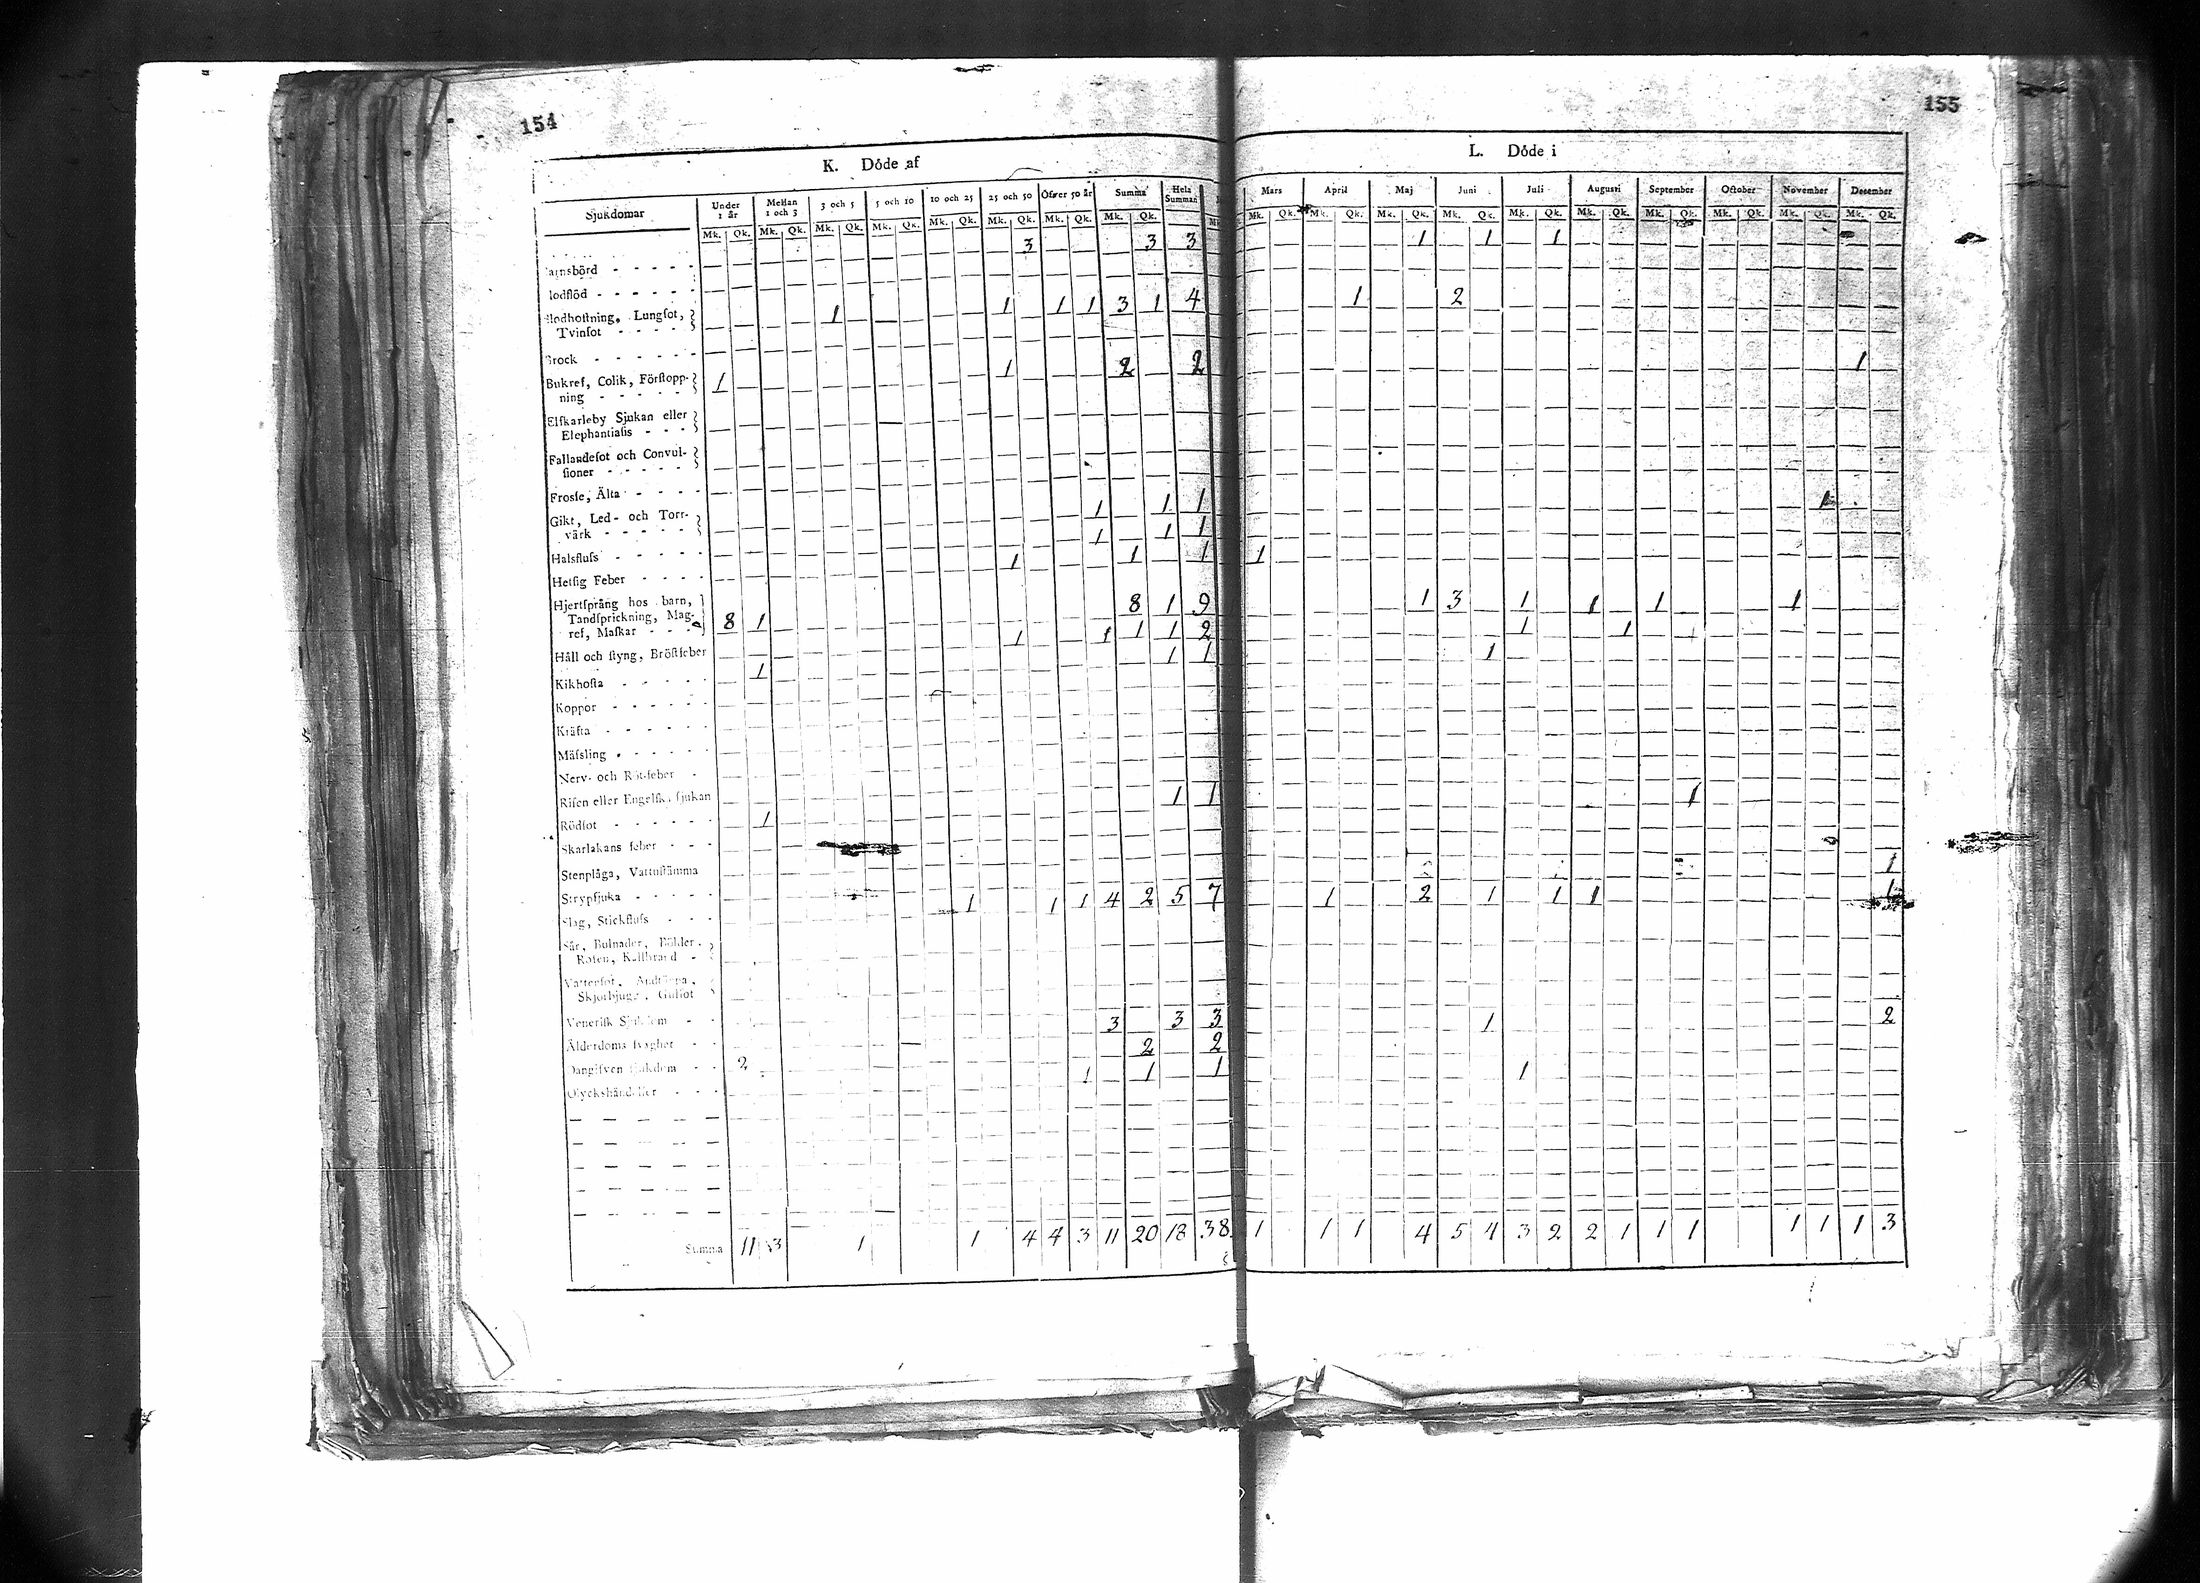 154
K. Döde af
Sjukdomar Under 1 år Mellan 1 och 3 3 och 5 5 och 10 10 och 25 25 och 50 Öfwer 50 år Summa Hela Summan
Mk. Qk. Mk. Qk. Mk. Qk. Mk. Qk. Mk. Qk. Mk. Qk. Mk. Qk. Mk. Qk.
3 3 3
arnsbörd - - - - -
lodflöd - - - - - -
Blodhostning, Lungsot, 1 1 1 1 3 1 4
Tvinsot - - - -
Brock - - - - - -
Bukref, Colik, Förstopp- 1 1 2 2
ning - - - - -
Elfkarleby Sjukan eller
Elephantiasis - - -
Fallandesot och Convul-
sioner - - - - -
Frossa, Älta - - - -
Gikt, Led- och Torr- 1 1 1
värk - - - - - 1 1 1
Halsfluss - - - - - 1 1 1
Hetsig Feber - - - -
Hjertsprång hos barn, 8 1 9
Tandsprickning, Mag- 8 1
ref, Maskar - - - 1 1 1 1 2
Håll och styng, Bröstfeber 1 1
Kikhosta - - - - - 1
Koppor - - - - -
Kräfta - - - - -
Mässling - - - - -
Nerv- och Röt-feber -
Risen eller Engelska sjukan 1 1
Rödsot - - - - - 1
Skarlakans feber - - -
Stenplåga, Vattustämma
Strypsjuka - - - - 1 1 1 4 2 5 7
Slag, Stickfluss - - -
Sår, Bulnader, Bölder,
Rosen, Kallbrand -
Vattensot, Andtäppa,
Skjörbjugg, Gulsot
Venerisk Sjukdom - - 3 3 3
Ålderdoms svaghet - - 2 2
Oangifven sjukdom - - 2 1 1 1
Olyckshändelser - - -
Summa 11 3 1 1 4 4 3 11 20 18 38
155
L. Döde i
Mars April Maj Juni Juli Augusti September October November December
Mk. Qk. Mk. Qk. Mk. Qk. Mk. Qk. Mk. Qk. Mk. Qk. Mk. Qk. Mk. Qk. Mk. Qk. Mk. Qk.
1 1 1
1 2
1
1
1
1 3 1 1 1 1
1 1
1
1
1
1 2 1 1 1 1
1 2
1
1 1 1 4 5 4 3 2 2 1 1 1 1 1 1 3